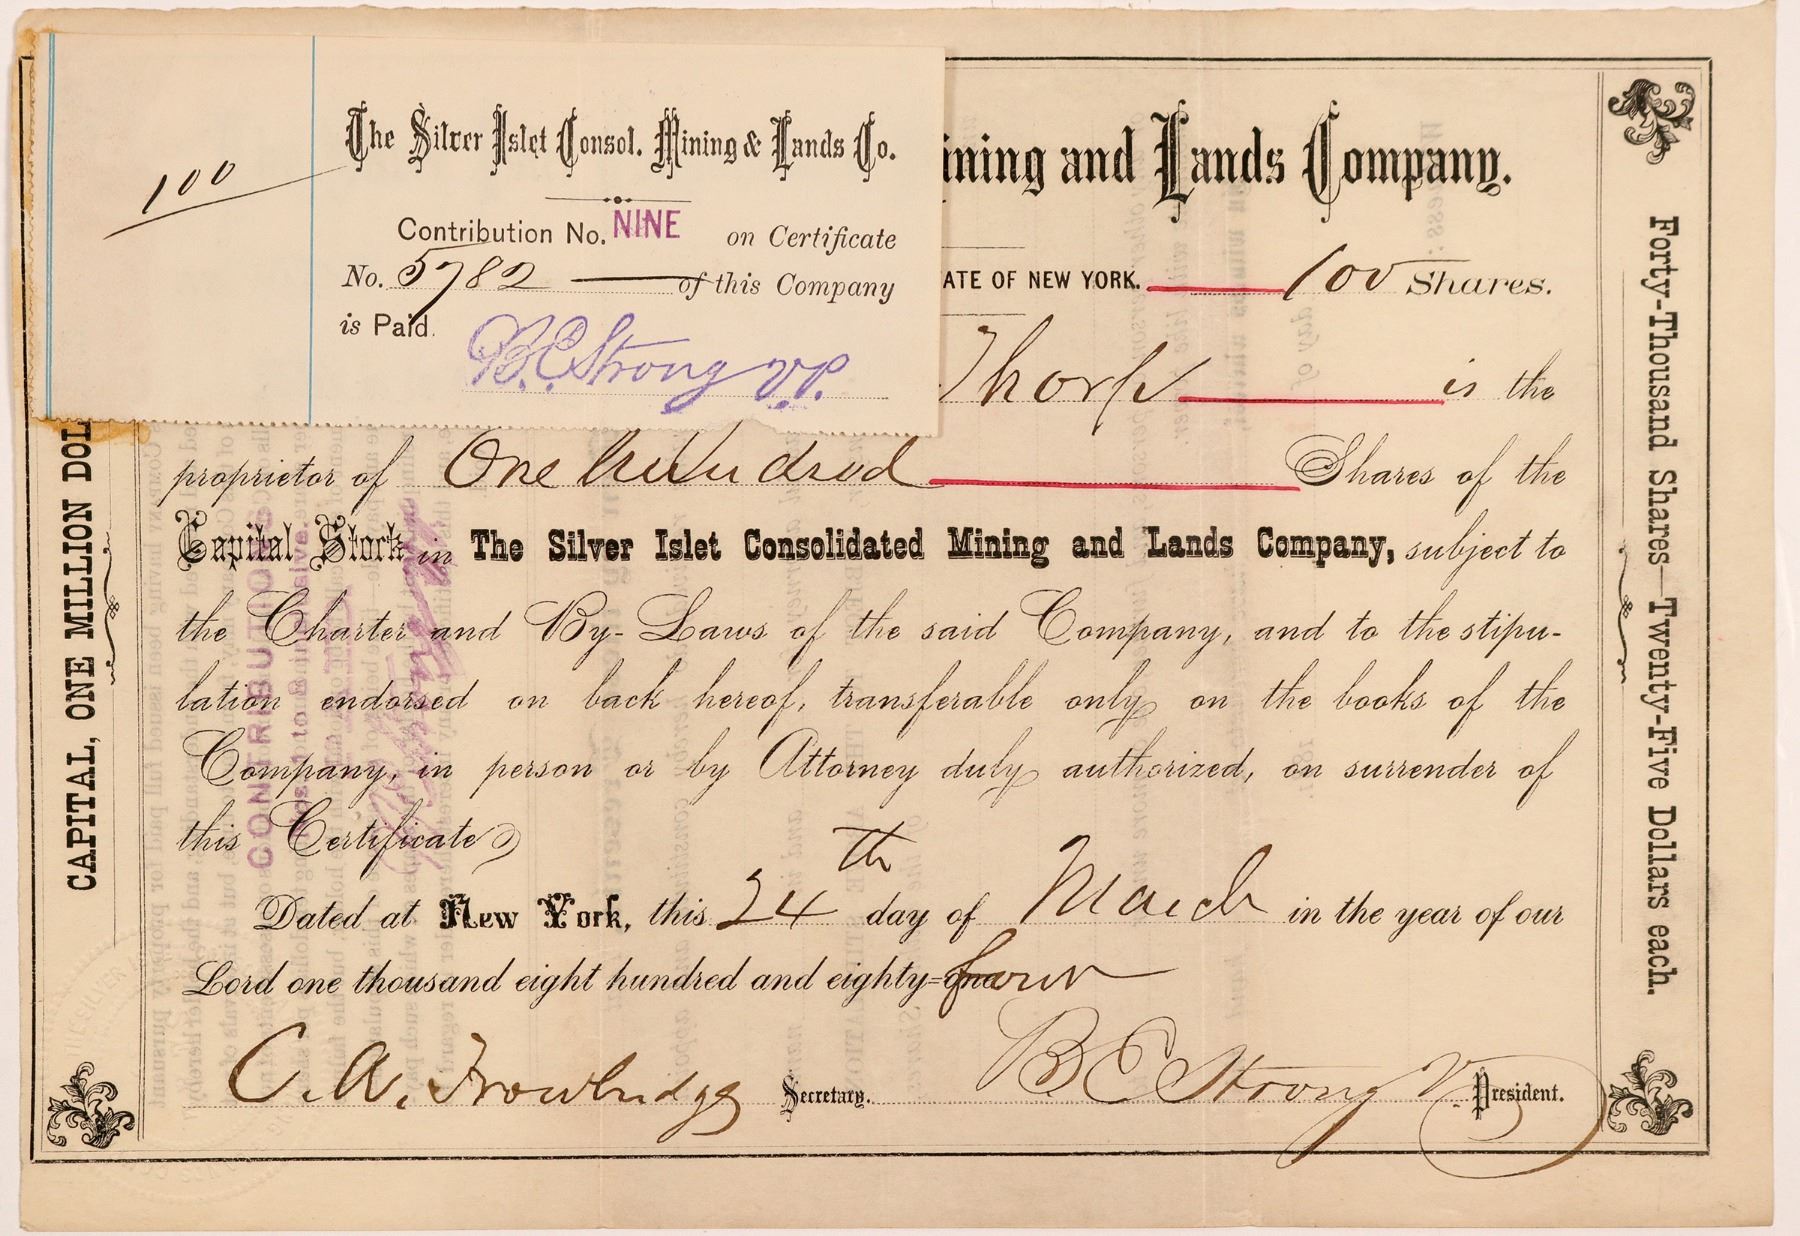 100
The Silver Islet Consol. Mining & Lands Co.
Contribution No. NINE on Certificate
No. 5782 of this Company
is Paid.
B. E. Strong V.P.
ining and Lands Company.
ATE OF NEW YORK. 100 Shares.
Thorp is the
proprietor of One hundred Shares of the
Capital Stock in The Silver Islet Consolidated Mining and Lands Company, subject to
the Charter and By-Laws of the said Company, and to the stipu-
lation endorsed on back hereof, transferable only on the books of the
Company, in person or by Attorney duly authorized, on surrender of
this Certificate
Dated at New York, this 24th day of March in the year of our
Lord one thousand eight hundred and eighty-four
C. A. Trowbridge Secretary. B E Strong V. President.
CAPITAL, ONE MILLION DOL
Forty-Thousand Shares—Twenty-Five Dollars each.